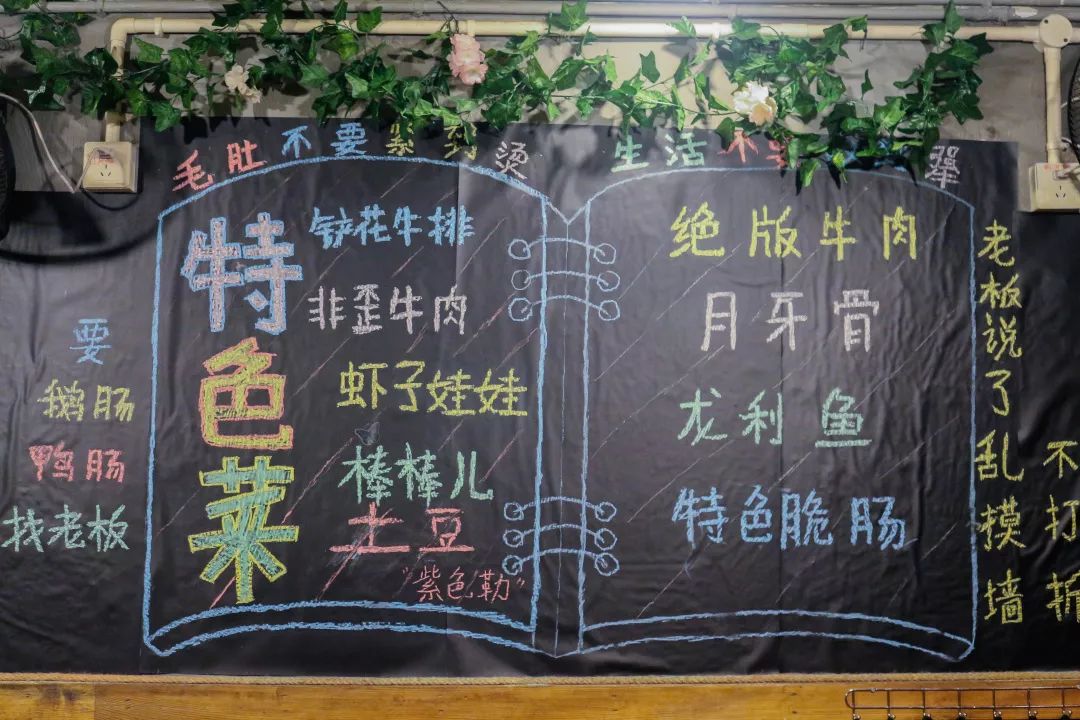 毛肚不要紧到烫
生活不要 犟
特色菜
铲花牛排
非歪牛肉
虾子娃娃
棒棒儿
土豆
"紫色勒"
绝版牛肉
月牙骨
龙利鱼
特色脆肠
要
鹅肠
鸭肠
找老板
老板说了乱摸墙
不打折